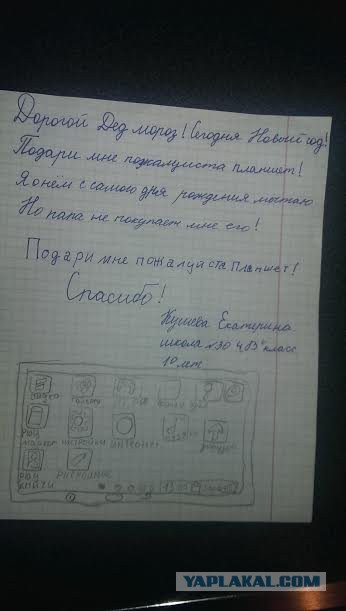 Дорогой Дед мороз! Сегодня Новый год!
Подари мне пожалуйста планшет!
Я о нём с самого дня рождения мечтаю
Но папа не покупает мне его!
Подари мне пожалуйста планшет!
Спасибо!
Кушева Екатерина
школа №30 4 "класс
10 лет
видео
настройки интернет
YAPLAKAL.COM